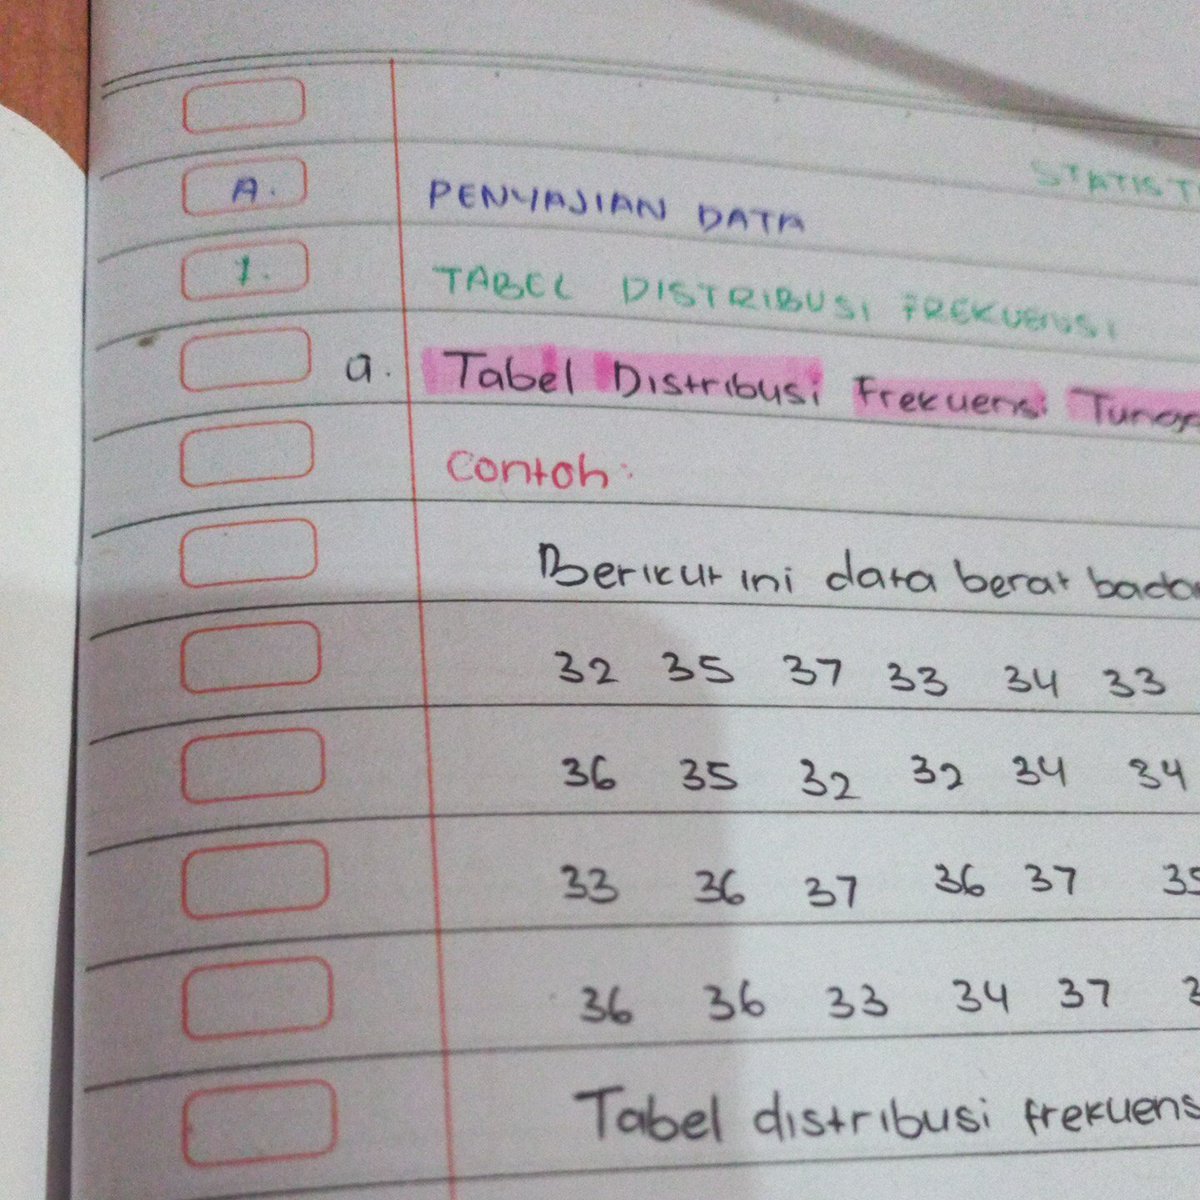 STATIST
A. PENYAJIAN DATA
1. TABEL DISTRIBUSI FREKUENSI
a. Tabel Distribusi Frekuensi
Contoh:
Berikut ini data berat
32 35 37 33 34 33
36 35 32 32 34 34
33 36 37 36 37 35
36 36 33 34 37
Tabel distribusi frekuens